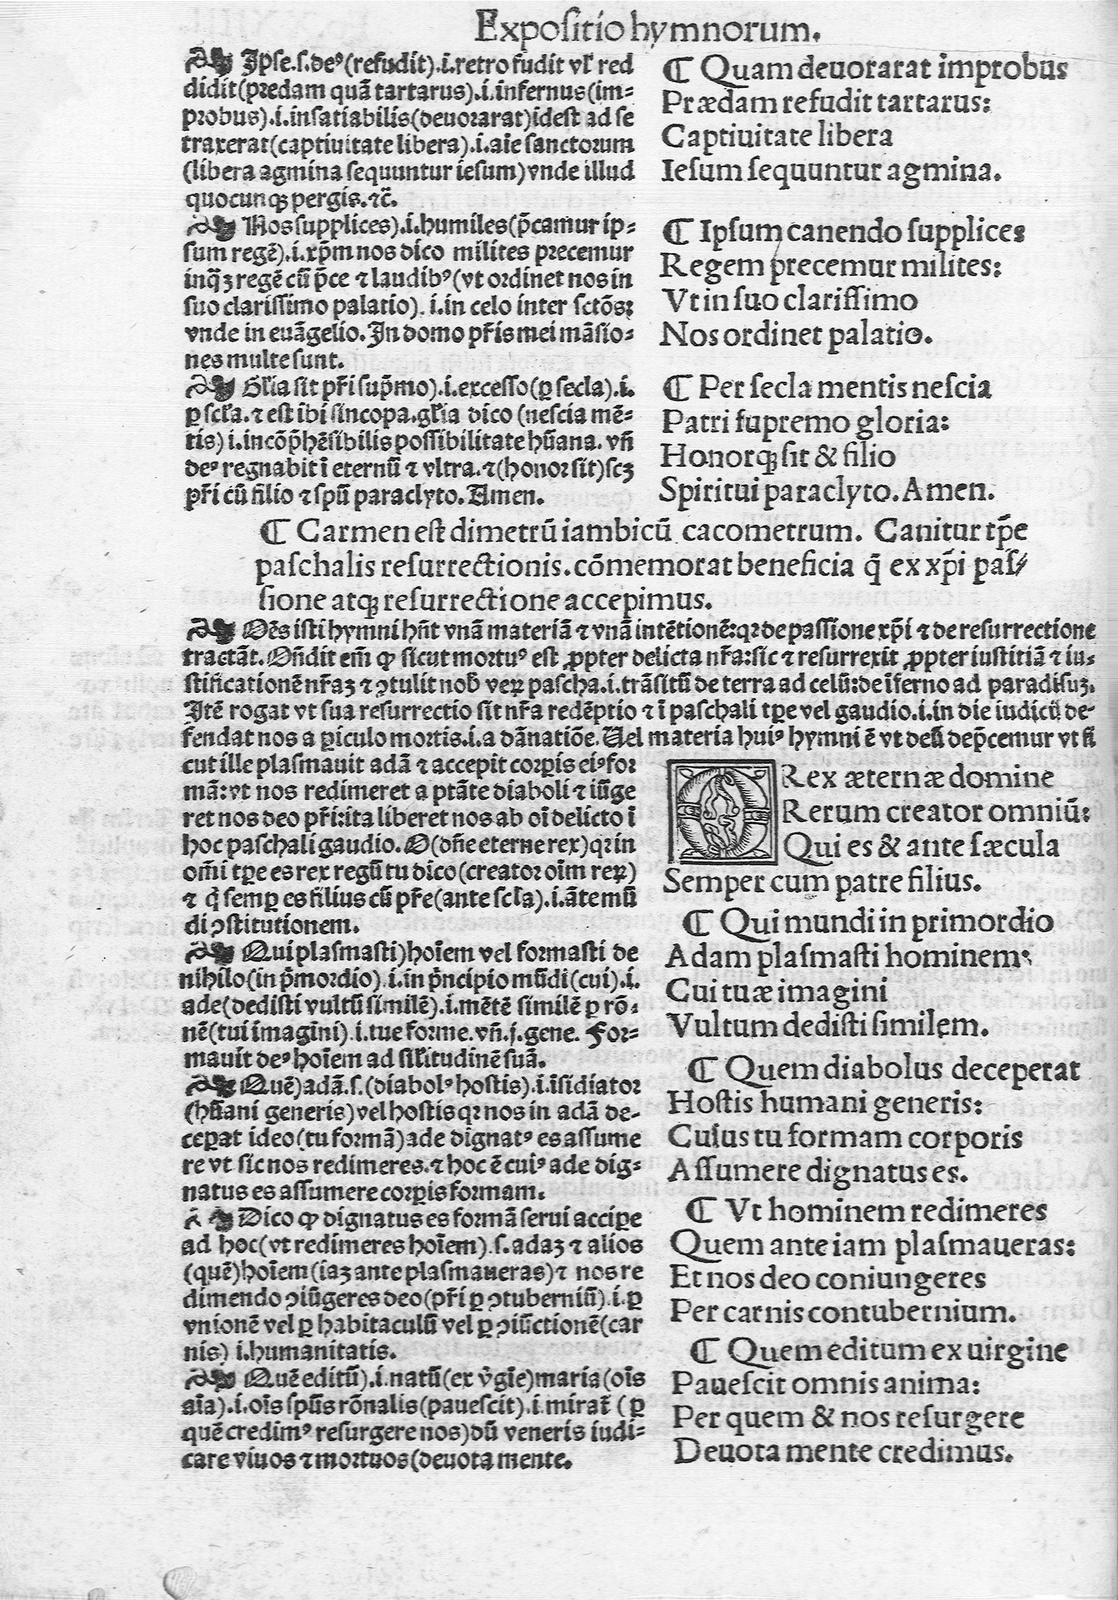 Expositio hymnorum.
Ipse.s.deꝰ(refudit).i.retro fudit vl' red
didit(predam quā tartarus).i.infernus(im-
probus).i.insatiabilis(deuorarat)idest ad se
traxerat(captiuitate libera).i.aīe sanctorum
(libera agmina sequuntur iesum)vnde illud
quocunqꝫ pergis.⁊c̄.
Nos supplices).i.humiles(p̄camur ip-
sum regē).i.xp̄m nos dico milites precemur
inqꝫ regē cū p̄ce ⁊ laudibꝰ(vt ordinet nos in
suo clarissimo palatio).i.in celo inter sctōs:
vnde in euāgelio.In domo pr̄is mei māsio-
nes multe sunt.
Gl'ia sit pr̄i sup̄mo).i.excesso(ꝑ secla).i.
ꝑ scl'a.⁊ est ibi sincopa.gl'ia dico (nescia mē-
tis)i.incōp̄hēsibilis possibilitate hūana.vn̄
deꝰ regnabit ī eternū ⁊ vltra.⁊(honor sit)scꝫ
pr̄i cū filio ⁊ spū paraclyto.Amen.
¶ Quam deuorarat improbus
Prædam refudit tartarus:
Captiuitate libera
Iesum sequuntur agmina.
¶ Ipsum canendo supplices
Regem precemur milites:
Vt in suo clarissimo
Nos ordinet palatio.
¶ Per secla mentis nescia
Patri supremo gloria:
Honorqꝫ sit & filio
Spiritui paraclyto. Amen.
¶ Carmen est dimetrū iambicū cacometrum. Canitur tp̄e
paschalis resurrectionis.cōmemorat beneficia q̄ ex xp̄i pas/
sione atqꝫ resurrectione accepimus.
Oēs isti hymni hn̄t vnā materiā ⁊ vnā intētionē:qꝛ de passione xp̄i ⁊ de resurrectione
tractāt.On̄dit em̄ ꝙ sicut mortuꝰ est ꝓpter delicta nr̄a:sic ⁊ resurrexit ꝓpter iustitiā ⁊ iu-
stificationē nr̄aꝫ ⁊ ꝯtulit nob̄ veꝝ pascha.i.trāsitū de terra ad celū:de īferno ad paradisuꝫ.
Itē rogat vt sua resurrectio sit nr̄a redēptio ⁊ ī paschali tp̄e vel gaudio.i.in die iudicij de-
fendat nos a ꝑiculo mortis.i.a dānatiōe.Vel materia huiꝰ hymni ē vt deū dep̄cemur vt si
cut ille plasmauit adā ⁊ accepit corꝑis eiꝰ for
mā:vt nos redimeret a ptāte diaboli ⁊ iūge
ret nos deo pr̄i:ita liberet nos ab oī delicto ī
hoc paschali gaudio.O(dn̄e eterne rex)qꝛ in
om̄i tp̄e es rex regū tu dico(creator oīm reꝝ)
⁊ q̇ semꝑ es filius cū pr̄e(ante scl'a).i.āte mū
di ꝯstitutionem.
Qui plasmasti)hoīem vel formasti de
nihilo(in p̄mordio).i.in p̄ncipio mūdi(cui).i.
ade(dedisti vultū similē).i.mētē similē ꝑ rō-
nē(tui imagini).i.tue forme.vn̄.j.gene. For-
mauit deꝰ hoīem ad sil'itudinē suā.
Quē)adā.s.(diabolꝰ hostis).i.īsidiator
(hūani generis)vel hostis qꝛ nos in adā de-
cepat ideo(tu formā)ade dignatꝰ es assume
re vt sic nos redimeres.⁊ hoc ē cuiꝰ ade dig-
natus es assumere corꝑis formam.
Dico ꝙ dignatus es formā serui accipe
ad hoc(vt redimeres hoīem).s.adaꝫ ⁊ alios
(quē)hoīem(iaꝫ ante plasmaueras)⁊ nos re
dimendo ꝯiūgeres deo(pr̄i ꝑ ꝯtuberniū).i.ꝑ
vnionē vel ꝑ habitaculū vel ꝑ ꝯiūctionē(car
nis)i.humanitatis.
Quē editū).i.natū(ex v̄gīe)maria(oīs
aīa).i.oīs spūs rōnalis(pauescit).i.mirat̄ (ꝑ
quē credimꝰ resurgere nos)dū veneris iudi-
care viuos ⁊ mortuos(deuota mente.
O Rex æternæ domine
Rerum creator omniū:
Qui es & ante sæcula
Semper cum patre filius.
¶ Qui mundi in primordio
Adam plasmasti hominem:
Cui tuæ imagini
Vultum dedisti similem.
¶ Quem diabolus deceperat
Hostis humani generis:
Cuius tu formam corporis
Assumere dignatus es.
¶ Vt hominem redimeres
Quem ante iam plasmaueras:
Et nos deo coniungeres
Per carnis contubernium.
¶ Quem editum ex uirgine
Pauescit omnis anima:
Per quem & nos resurgere
Deuota mente credimus.